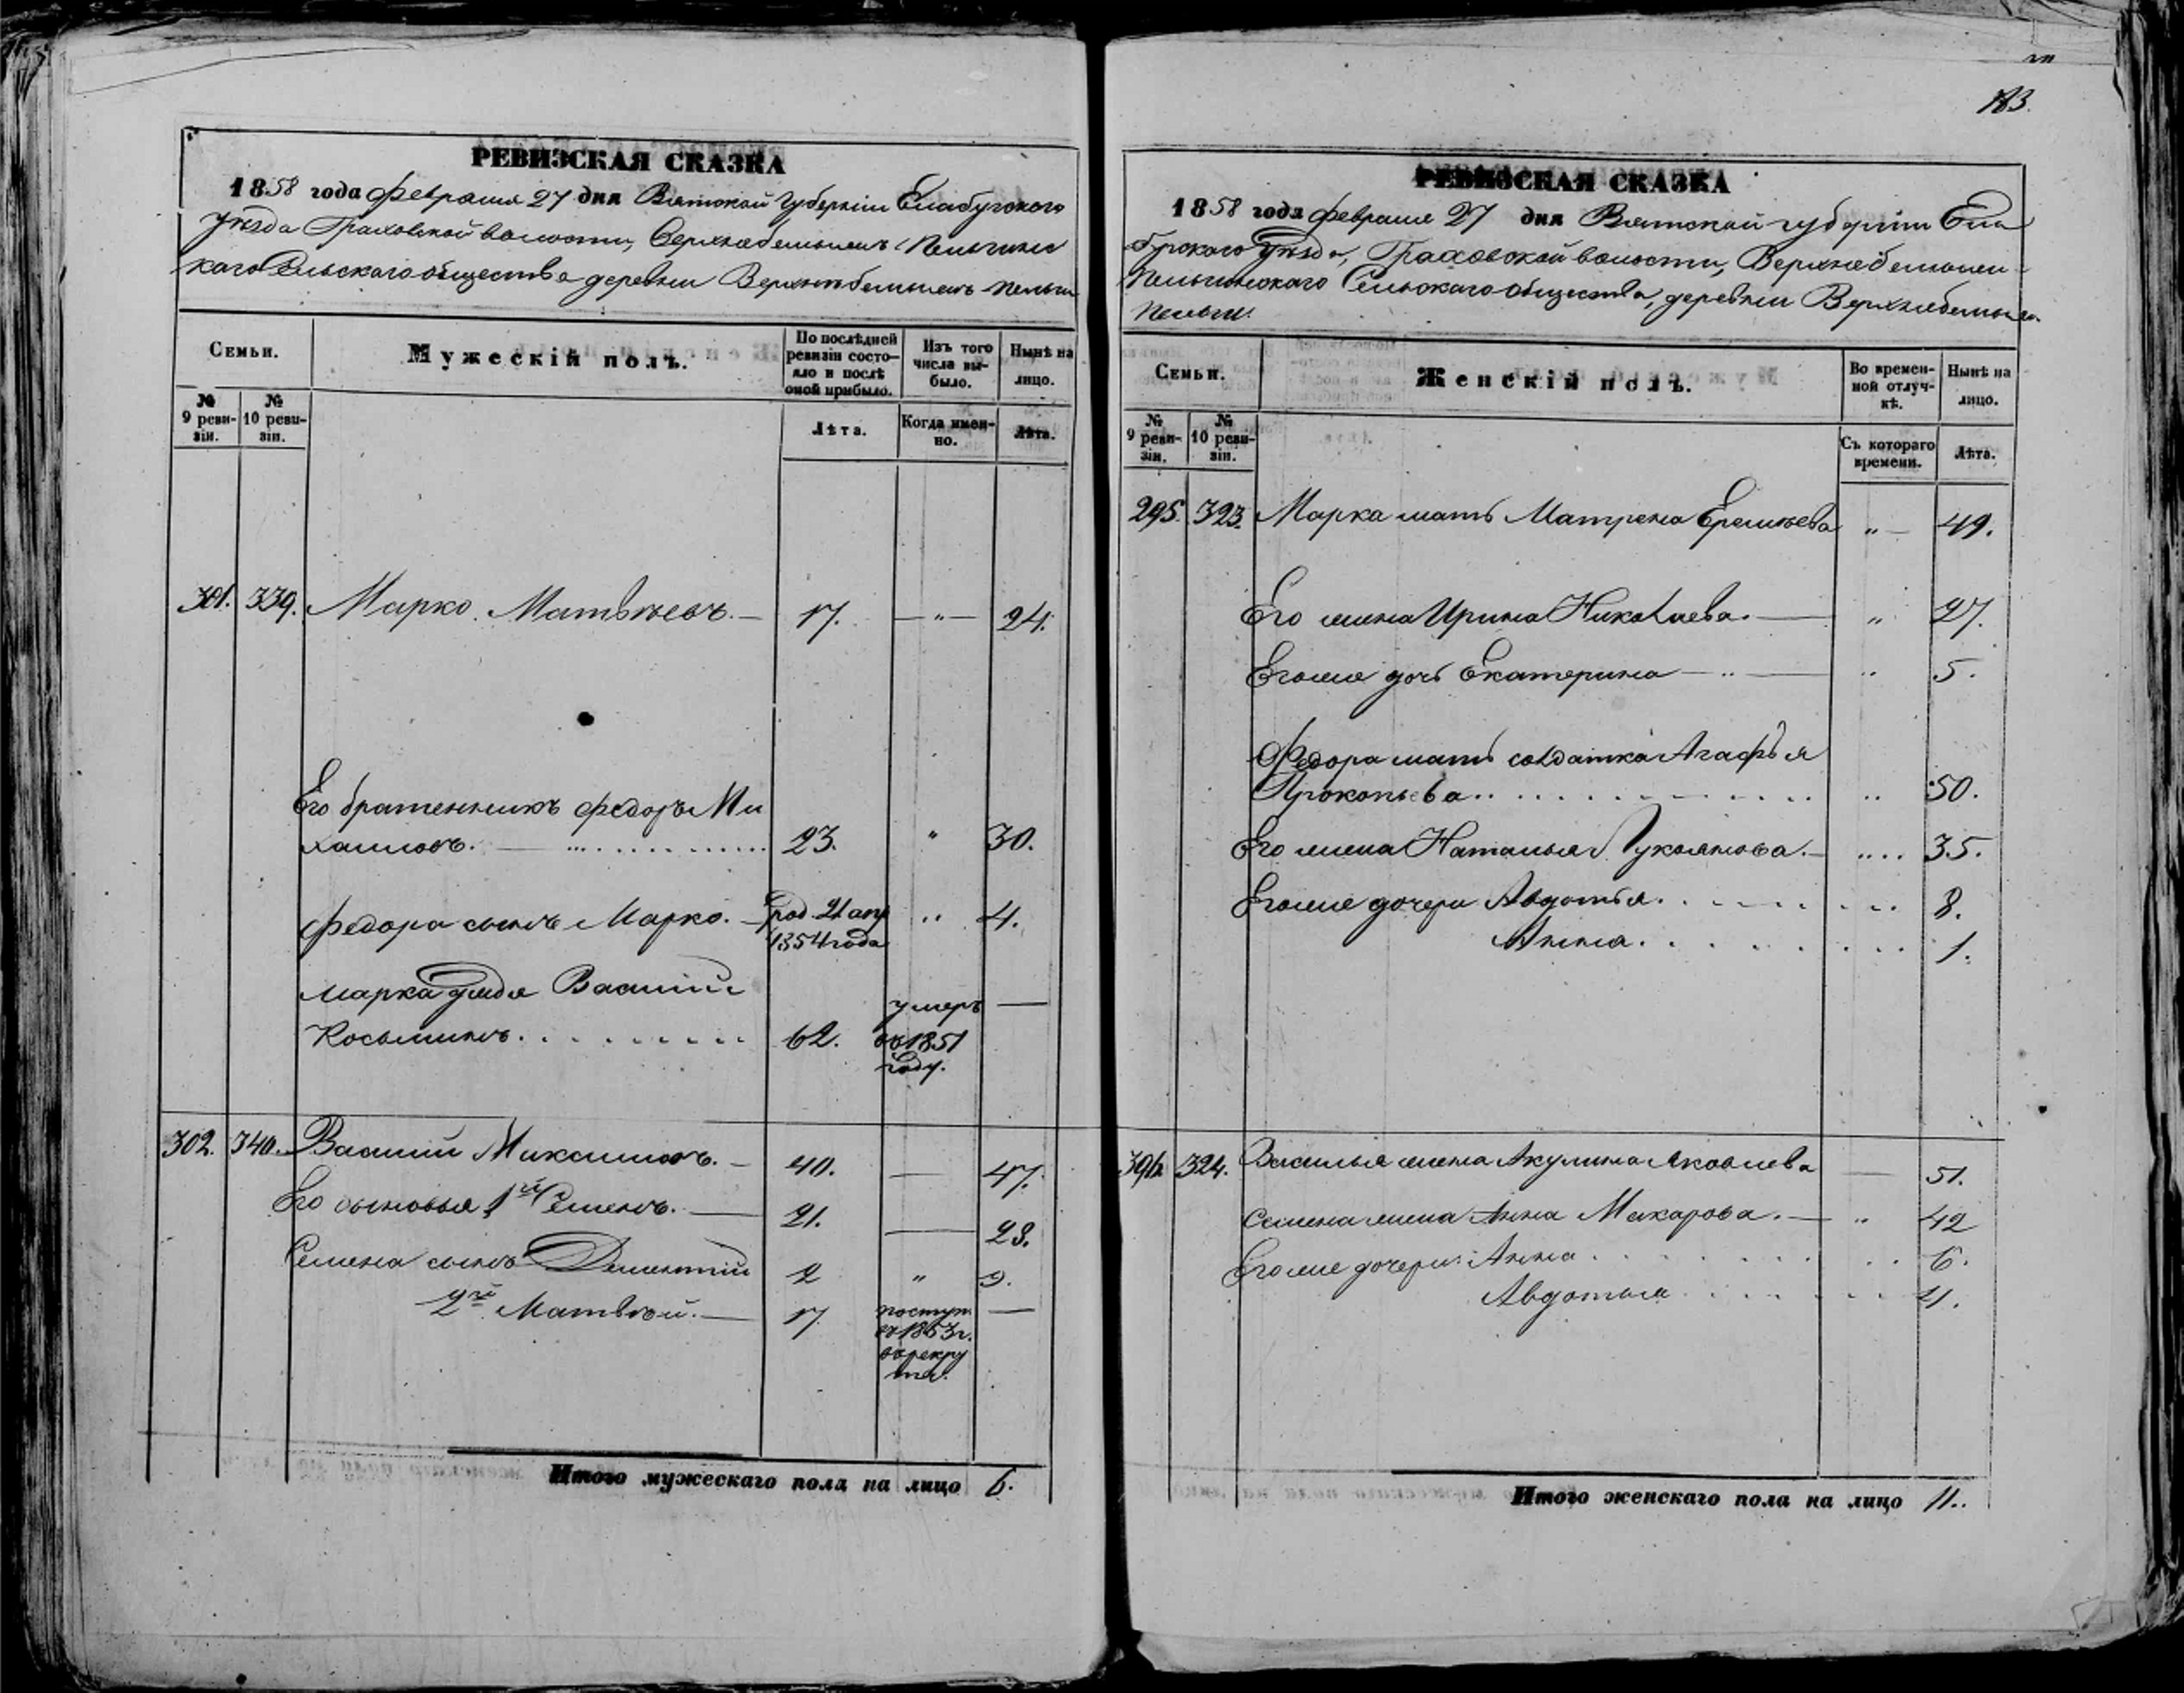 183.
РЕВИЗСКАЯ СКАЗКА
1858 года Февраля 27 дня Вятской Губерніи Елабугского
уѣзда Граховской волости, Верхнебемыжъ Пельгинс
каго Сельскаго общества деревни
Семьи.
Мужескій полъ.
По послѣдней ревизіи состо-
яло и послѣ
оной прибыло.
Изъ того
числа вы-
было.
Нынѣ на
лицо.
№
9 реви-
зіи.
№
10 реви-
зіи.
Лѣта.
Когда имен-
но.
Лѣта.
301. 339. Марко Матвѣевъ. — 17. — „ — 24.
Его братенникъ Федоръ Ми
хаиловъ. 23. „ 30.
Федора сынъ Марко. — род. 21 апр „ 4.
1854 года
Марка дядя Василій умеръ —
Косьминъ. 62. въ 1851
году.
302. 340. Василій Максимовъ. — 40. — 47.
Его сыновья 1й Семенъ. — 21. — 28.
Семена сынъ Дементій 2 „ 9.
2й Матвѣй. — 17 поступ. —
въ 1853 г.
въ рекру
ты.
Итого мужескаго пола на лицо 6.
РЕВИЗСКАЯ СКАЗКА
1858 года Февраля 27 дня Вятской губерніи Ела
бугского уѣзда, Граховской волости,
Пельгинскаго Сельскаго общества, деревни
Пельги.
Семьи.
Женскій полъ.
Во времен-
ной отлуч-
кѣ.
Нынѣ на
лицо.
№
9 реви-
зіи.
№
10 реви-
зіи.
Съ котораго
времени.
Лѣта.
295. 323. Марка мать Матрена Еремѣева „ — 49.
Его жена Ирина Николаева. — „ 27.
Его же дочь Екатерина — „ 5.
Федора мать солдатка Агафья
Прокопьева. „ 50.
Его жена Наталья Лукоянова. — „ 35.
Его же дочери Авдотья. 8.
Анна. 1.
324. Василья жена Акулина Яковлева — 51.
Семена жена Анна Макарова. — „ 42
Его же дочери: Анна 6.
Авдотья 4.
Итого женскаго пола на лицо 11.